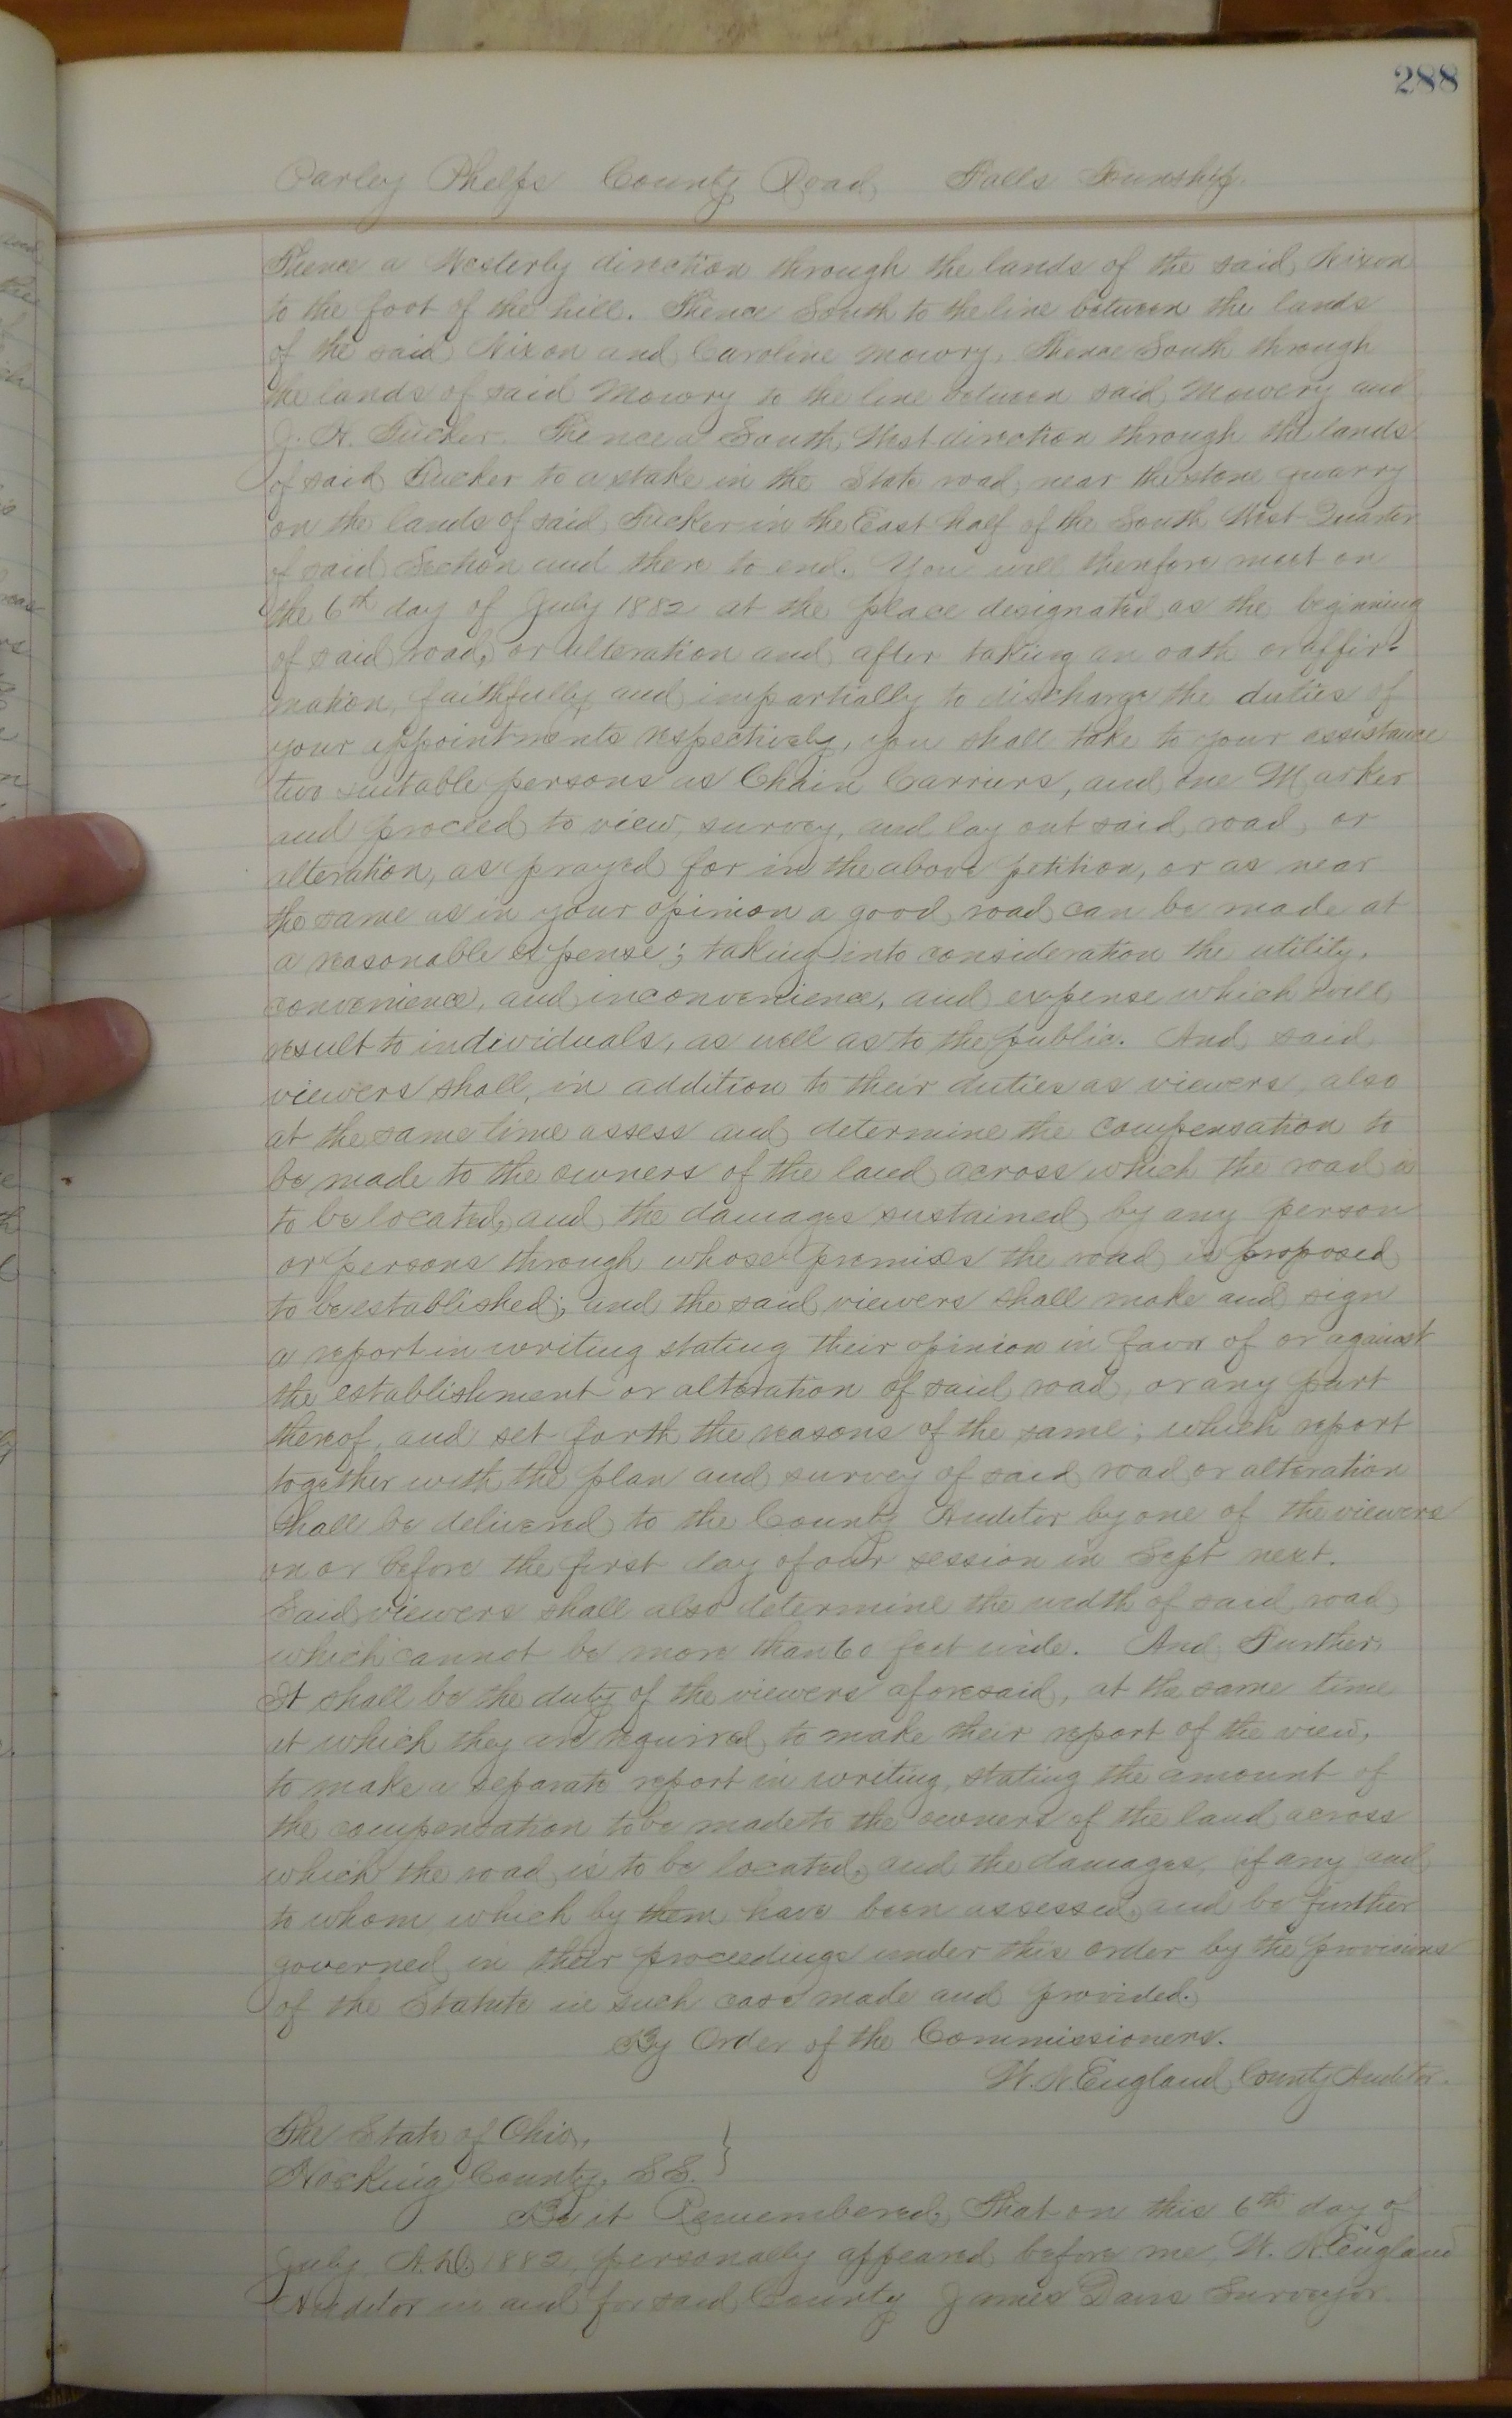 288
Parley Phelps County Road Falls Township.
Thence a Westerly direction through the lands of the said Nixon
to the foot of the hill. Thence South to the line between the lands
of the said Nixon and Caroline Mowry, Thence South through
the lands of said Mowry to the line between said Mowery and
J. H. Tucker. Thence a South West direction through the lands
of said Tucker to a stake in the State road, near the stone quarry
on the lands of said Tucker in the East half of the South West Quarter
of said Section and there to end. You will therefore meet on
the 6th day of July 1882 at the place designated as the beginning
of said road, or alteration and after taking an oath or affir-
mation, faithfully and impartially to discharge the duties of
your appointments respectively, you shall take to your assistance
two suitable persons as Chain Carriers, and one Marker
and proceed to view, survey, and lay out said road, or
alteration, as prayed for in the above petition, or as near
the same as in your opinion a good road can be made at
a reasonable expense; taking into consideration the utility,
convenience, and inconvenience, and expense which will
result to individuals, as well as to the public. And said
viewers shall, in addition to their duties as viewers, also
at the same time assess and determine the compensation to
be made to the owners of the land across which the road is
to be located, and the damages sustained by any person
or persons through whose premises the road is proposed
to be established; and the said viewers shall make and sign
a report in writing stating their opinion in favor of or against
the establishment or alteration of said road, or any part
thereof, and set forth the reasons of the same; which report
together with the plan and survey of said road or alteration
shall be delivered to the County Auditor by one of the viewers
on or before the first day of our session in Sept next.
Said viewers shall also determine the width of said road
which cannot be more than 60 feet wide. And Further
It shall be the duty of the viewers aforesaid, at the same time
at which they are required to make their report of the view,
to make a separate report in writing, stating the amount of
the compensation to be made to the owners of the land across
which the road is to be located, and the damages, if any and
to whom, which by them have been assessed, and be further
governed in their proceedings under this order by the provisions
of the Statute in such case made and provided.
By Order of the Commissioners.
W. N. England County Auditor.
The State of Ohio,
Hocking County, SS. }
Be it Remembered, That on this 6th day of
July A.D. 1882, personally appeared before me W. N. England
Auditor in and for said County James Davis Surveyor